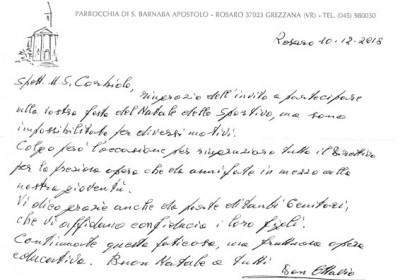 PARROCCHIA DI S. BARNABA APOSTOLO - ROSARO 37023 GREZZANA (VR) - TEL. (045) 980030
Rosaro 10-12-2018
Spett. U.S. Corbiolo,
ringrazio dell'invito a partecipare
alla vostra festa del Natale dello Sportivo, ma sono
impossibilitato per diversi motivi.
Colgo però l'occasione per ringraziare tutto il Direttivo
per la preziosa opera che da anni fate in mezzo alla
nostra gioventù.
Vi dico grazie anche da parte di tanti Genitori,
che vi affidano con fiducia i loro figli.
Continuate questa faticosa, ma fruttuosa opera
educativa. Buon Natale a tutti
Don